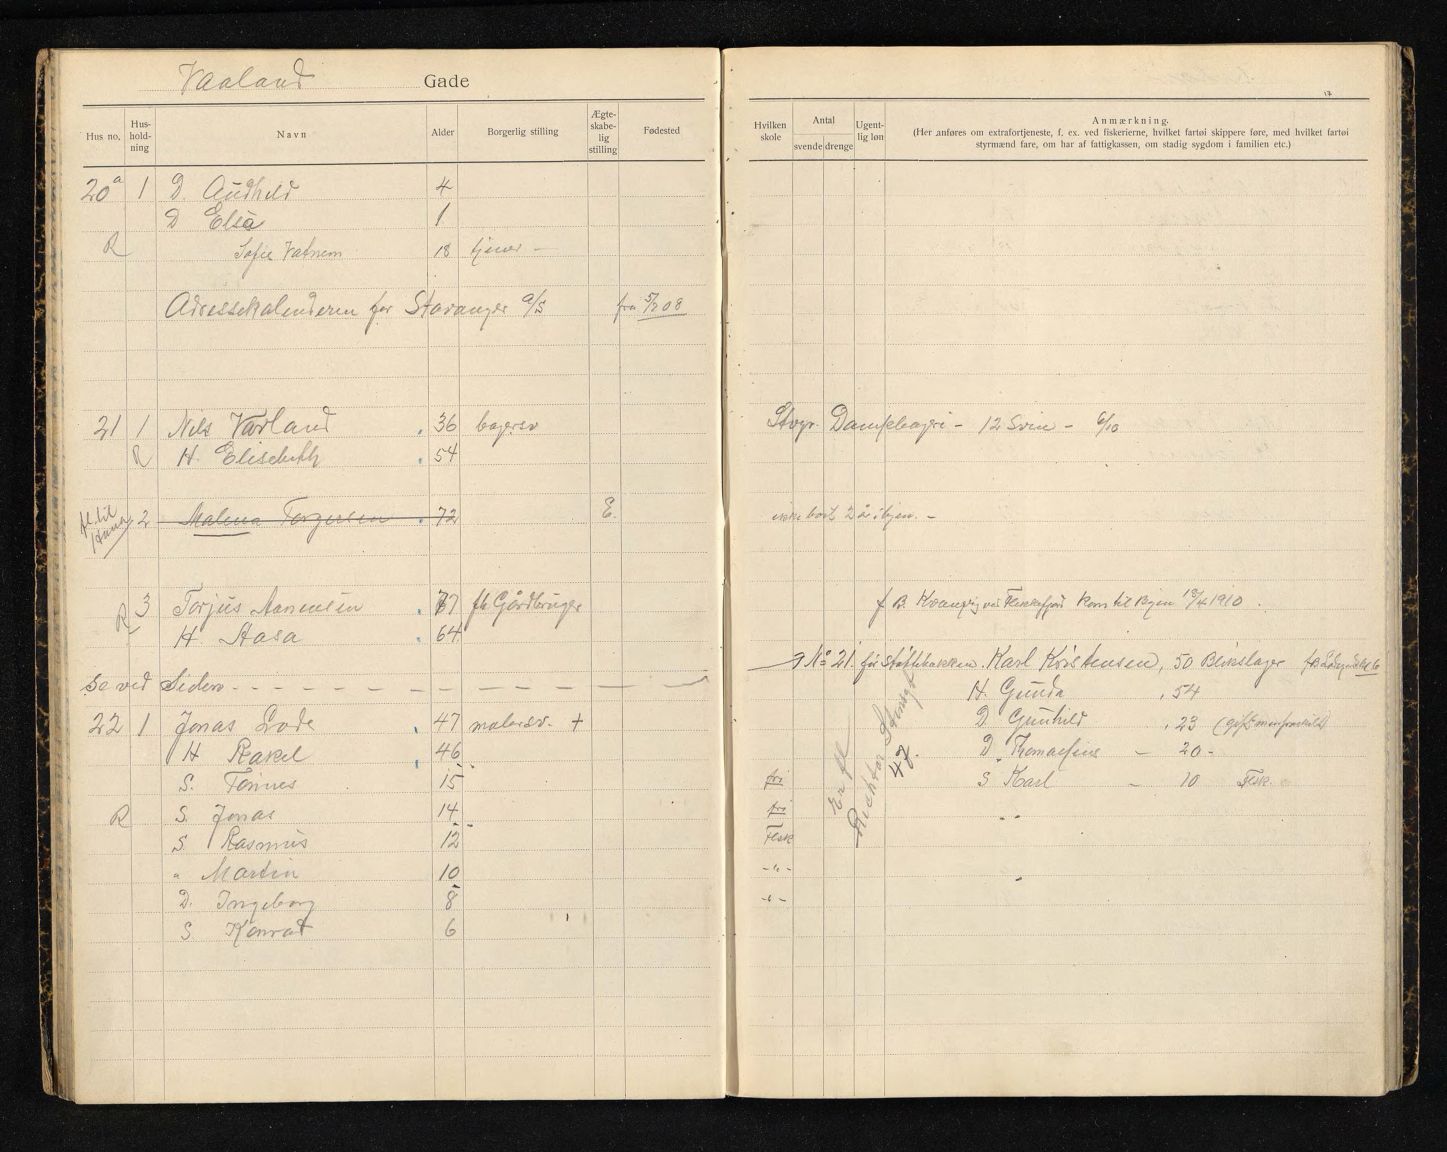 Vaaland Gade
Hus no. Hus-hold-ning Navn Alder Borgerlig stilling Ægte-skabe-lig stilling Fødested
20a 1 D. Audhild 4
D Elsa 1
R Sofie Vatnem 18 tjener —
Adressekalenderen for Stavanger a/s fra 5/2 08
21 1 Nils Varland 36 bagersv
R H. Elisebeth 54
fl. til 2 Malena Torgersen 72 E.
R 3 Torjus Aanensen 77 fh Gårdbruger
H. Aasa 64
Se ved Siden - - - - -
22 1 Jonas Lode 47 malersv. +
H Rakel 46
S. Tønnes 15
R S. Jonas 14
S. Rasmus 12
" Martin 10
D. Ingeborg 8
S Konrad 6
17
Hvilken skole Antal svende drenge Ugent-lig løn Anmærkning.
(Her anføres om extrafortjeneste, f. ex. ved fiskerierne, hvilket fartøi skippere føre, med hvilket fartøi
styrmænd fare, om har af fattigkassen, om stadig sygdom i familien etc.)
Stvgr. Dampbageri - 12 Svin - 6/10
ikke bort 2 år i byen. -
f B. Kvanvig ved Flekkefjord kom til byen 18/4 1910.
No 21 før Støttebakken. Karl Kristensen, 50 Blikslager
H. Gunda 54
D Gunhild 23
D. - 20 -
fri S Karl - 10 Flsk.
fri
Flsk
- " -
- " -
Er fl
47